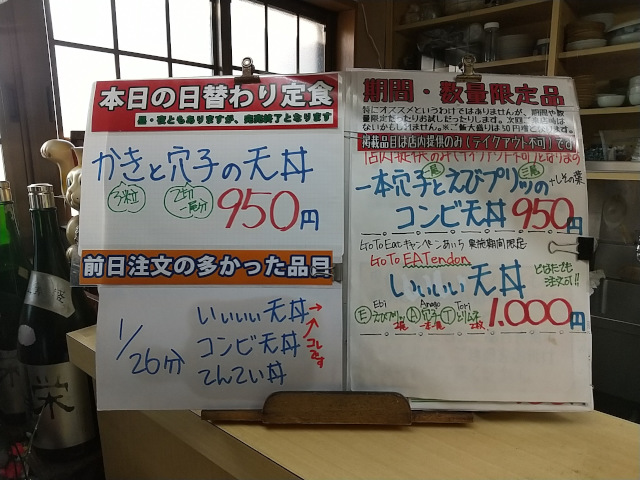 本日の日替わり定食
昼・夜ともありますが、売切終了となります
かきと穴子の天丼
3粒
2切
一尾分
950円
前日注文の多かった品目
1/26分
いいいい天丼→
コンビ天丼
てんてい丼
↑
コレです
期間・数量限定品
特にオススメというわけではありませんが、期間や数
量限定だったりお試しだったりします。次回ご来店時は
ないかもしれません。※ご飯大盛りは50円増となります。
掲載品目は店内提供のみ(テイクアウト不可)です
一本穴子とえびプリッの
一尾
三尾
+しその葉
コンビ天丼 950円
GoToEatキャンペーンあいち 実施期間限定
GoTo EATendon
いいいい天丼
どなたでも
注文可!!
1.000円
Ebi
Anago
Tori
Ⓔえびプリッ Ⓐ穴子 Ⓣとりムネ
2尾
一本・尾
2枚
栄